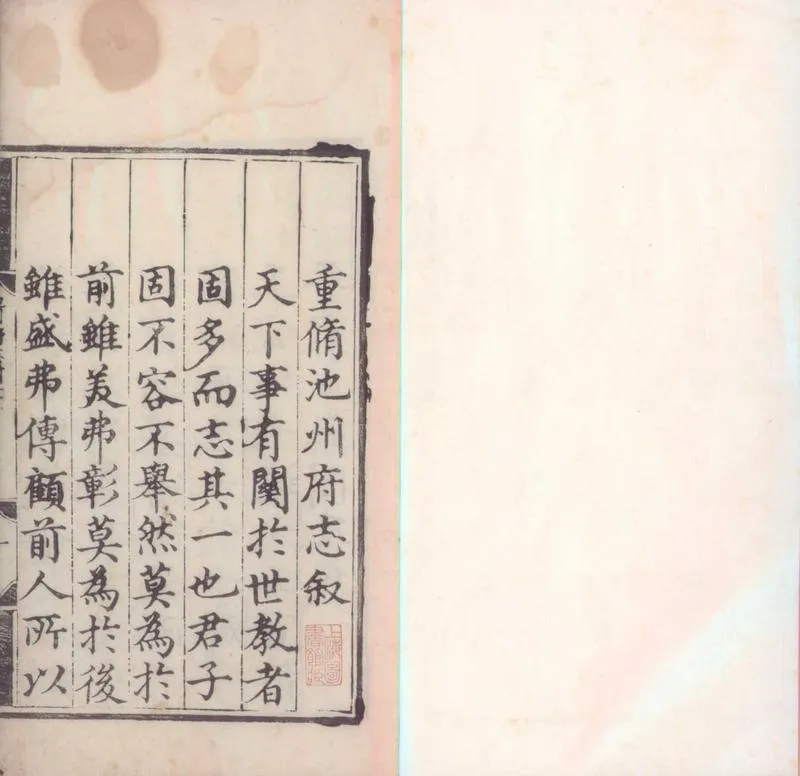 重脩池州府志叙
天下事有關於世教者
固多而志其一也君子
固不容不舉然莫為於
前雖美弗彰莫為於後
雖盛弗傳顧前人所以
上海圖書館藏